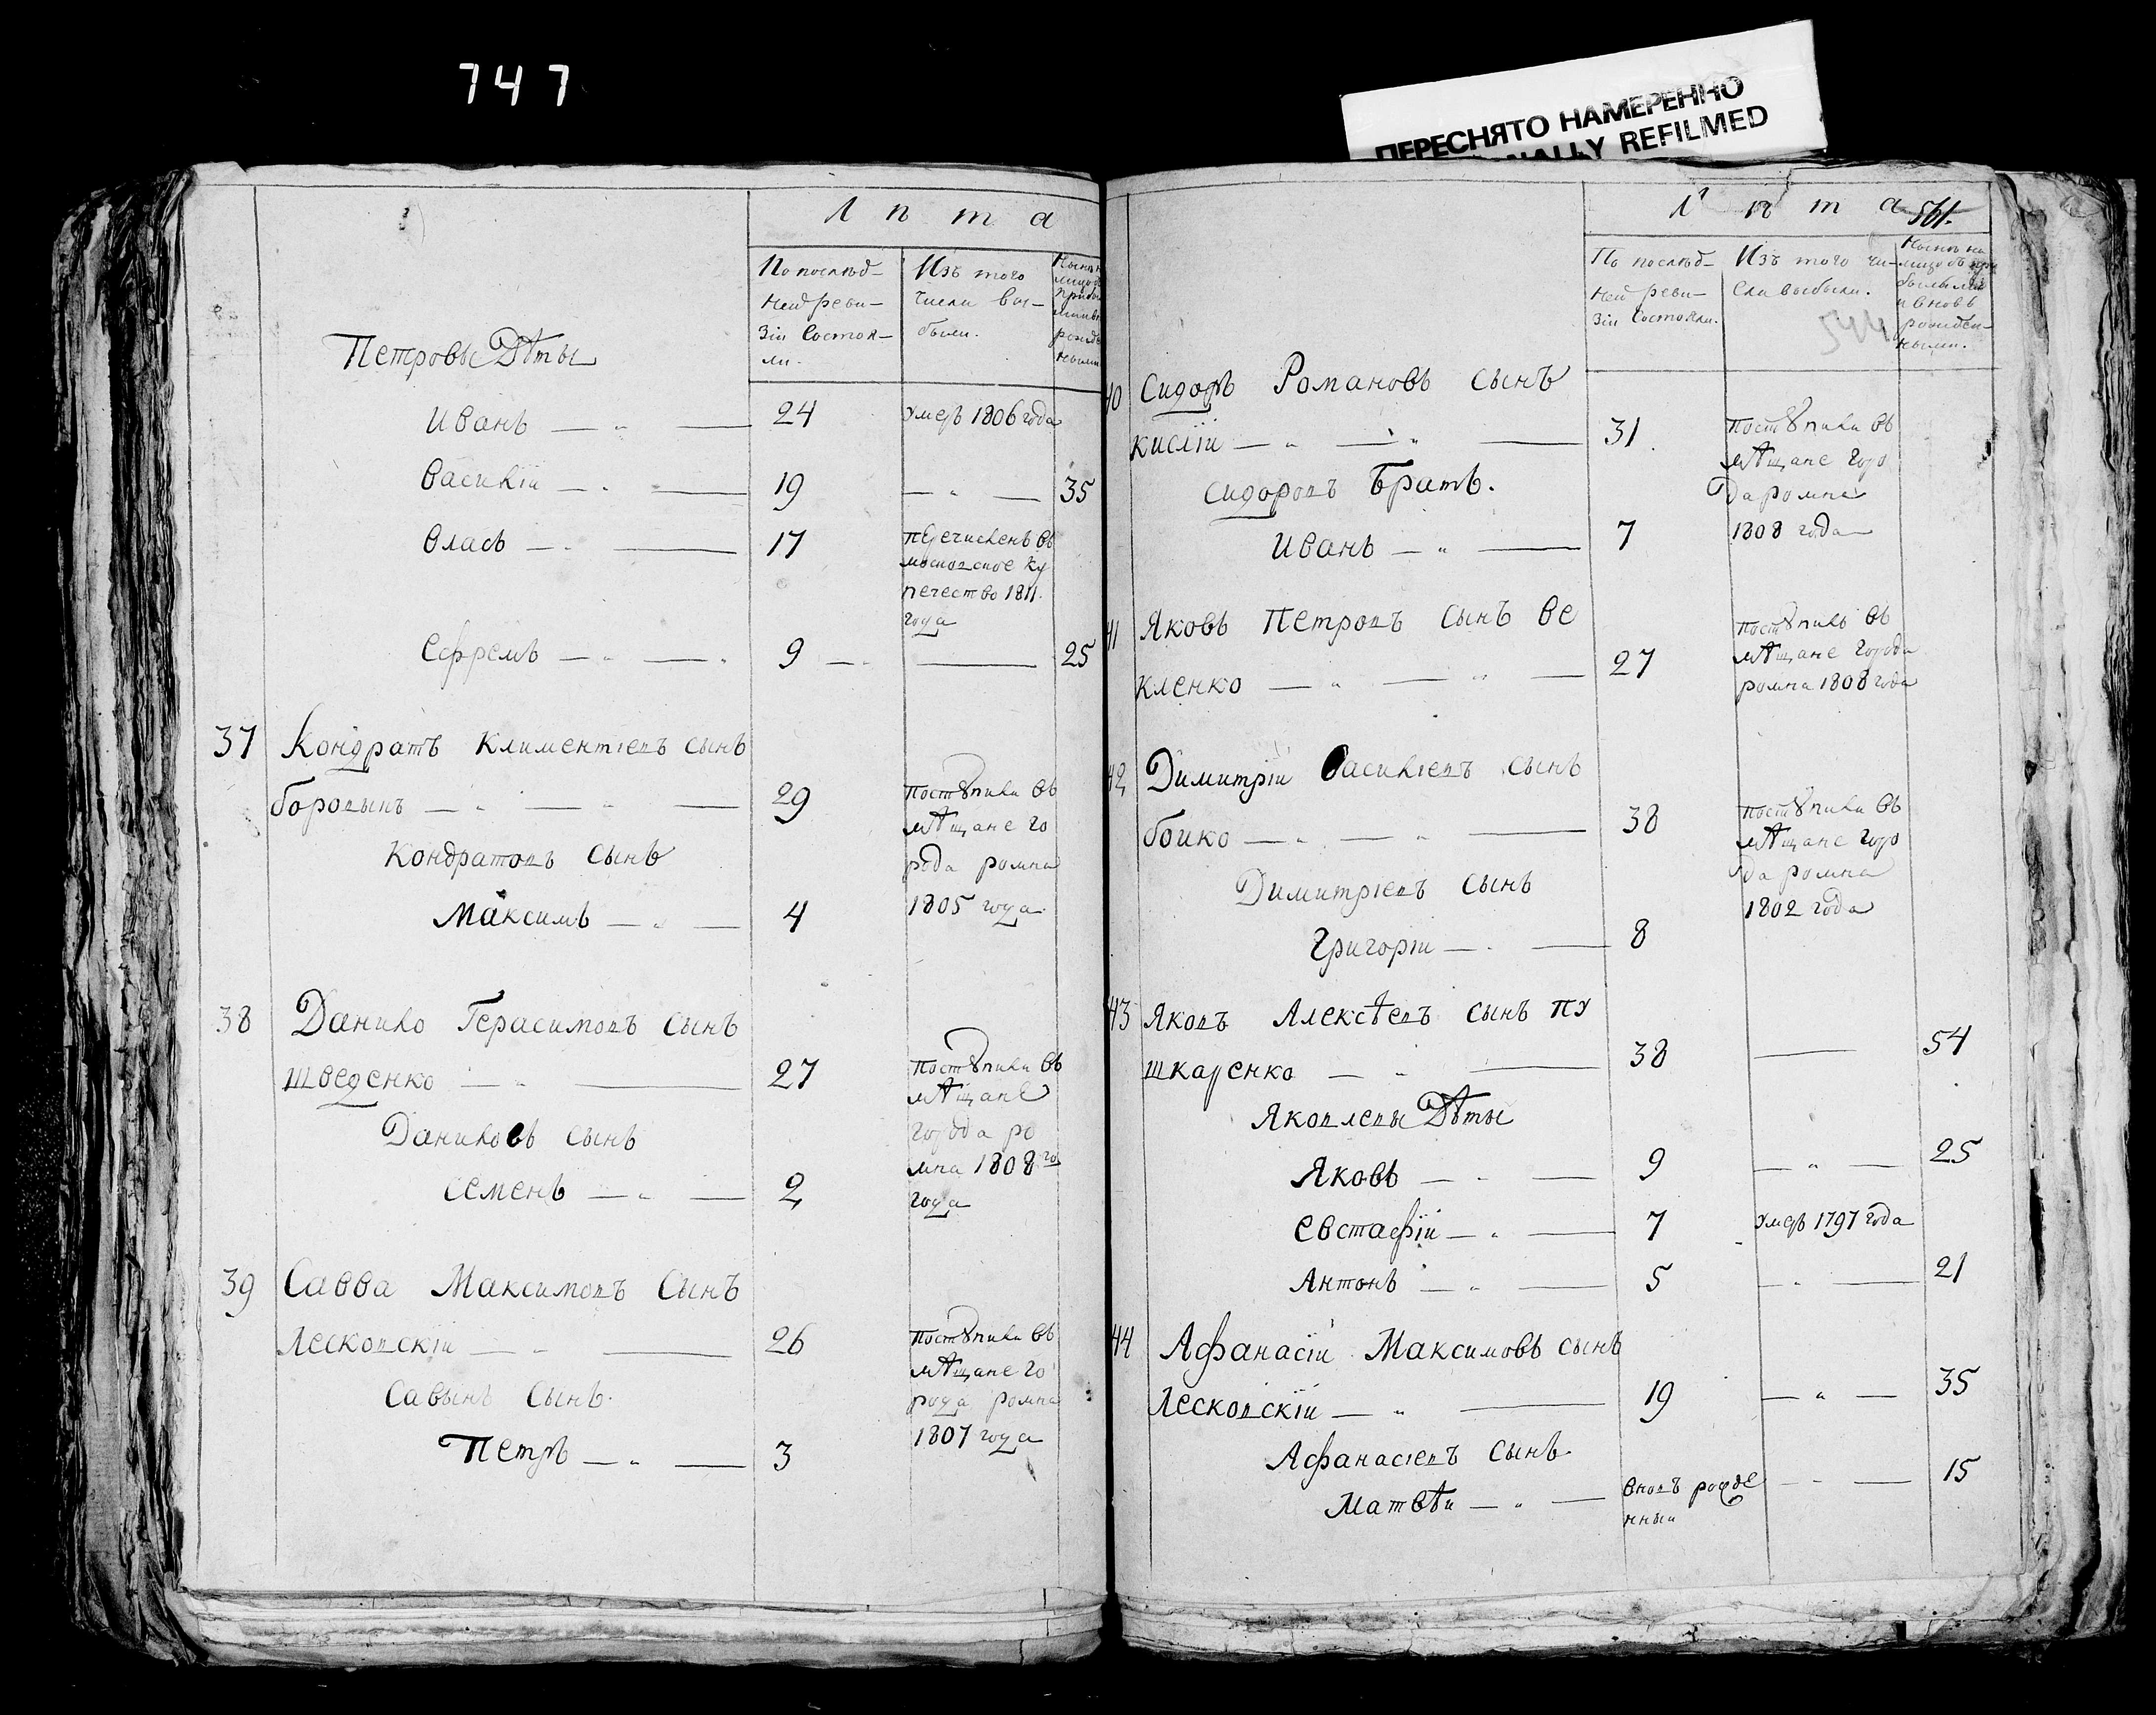 747
ПЕРЕСНЯТО НАМЕРЕННО
NALLY REFILMED
Лѣта
По послѣд-
ней реви-
зіи Состоя-
ли.
Изъ того
числа вы-
были.
Петровы Дѣты
Иванъ — „ — 24 умеръ 1806 года
Василій — „ — 19 — „ — 35
Власъ — „ — 17 перечисленъ въ
московское ку
печество 1811.
года
Ефремъ — „ — 9 — 25
37 Кондратъ Климентіевъ сынъ
боровынъ — „ — „ — 29 Поступили въ
мѣщане го
рода ромна
1805 года
Кондратовъ сынъ
Максимъ — „ — 4
38 Данило Герасимовъ сынъ
шведенко — „ — 27 Поступили въ
мѣщане
города ро
мна 1808 го
года
Даниловъ сынъ
Семенъ — „ — 2
39 Савва Максимовъ Сынъ
Лесковскіи — „ — 26 поступили въ
мѣщане го
рода ромна
1807 года
Савынъ Сынъ.
Петръ — „ — 3
Лѣта 561.
По послѣд-
ней реви-
зіи Состояли.
Изъ того чи-
сла выбыли.
544
и вновь
рожден-
ными.
40 Сидоръ Романовъ сынъ
кислій — „ — „ — 31 поступили въ
мѣщане горо
да ромна
1808 года
Сидоровъ Братъ.
Иванъ — „ — 7
41 Яковъ Петровъ Сынъ Ве
кленко — „ — „ — 27 поступилъ въ
мѣщане города
ромна 1808 года
42 Димитріи Василіевъ сынъ
боико — „ — „ — 38 поступили въ
мѣщане горо
да ромна
1802 года
Димитріевъ Сынъ
Григоріи — „ — 8
43 Яковъ Алексѣевъ сынъ пу
шкаренко — „ — 38 — 54
Яковлевы Дѣты
Яковъ — „ — 9 — „ — 25
Евстафій — „ — 7 умеръ 1797 года
Антонъ — „ — 5 — „ — 21
44 Афанасіи Максимовъ сынъ
Лесковскіи — „ — 19 — „ — 35
Афанасіевъ Сынъ.
Матвѣи — „ — вновъ рожде
нныи — „ — 15